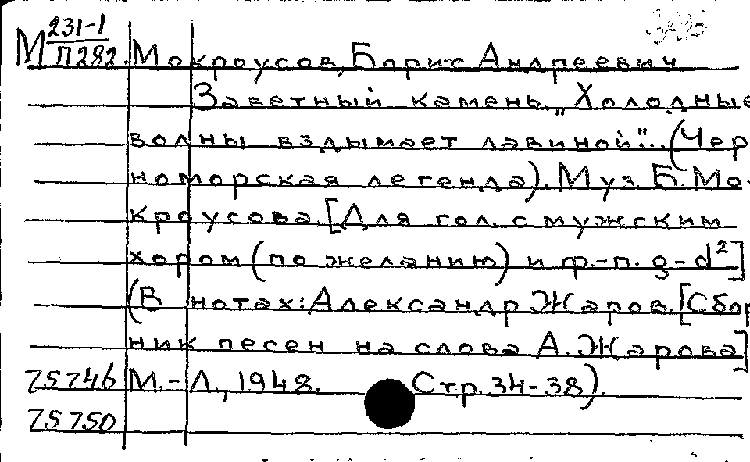 М 231-1
П282. Мокроусов, Борис Андреевич
Заветный камень. „Холодные
волны вздымает лавиной"... (Чер
номорская легенда). Муз. Б. Мо-
кроусова. [Для гол. с мужским
хором (по желанию) и ф.-п. g-d²]
(В нотах: Александр Жаров. [Сбор
ник песен на слова А. Жарова]
75746 М.-Л., 1948. Стр. 34-38).
75750